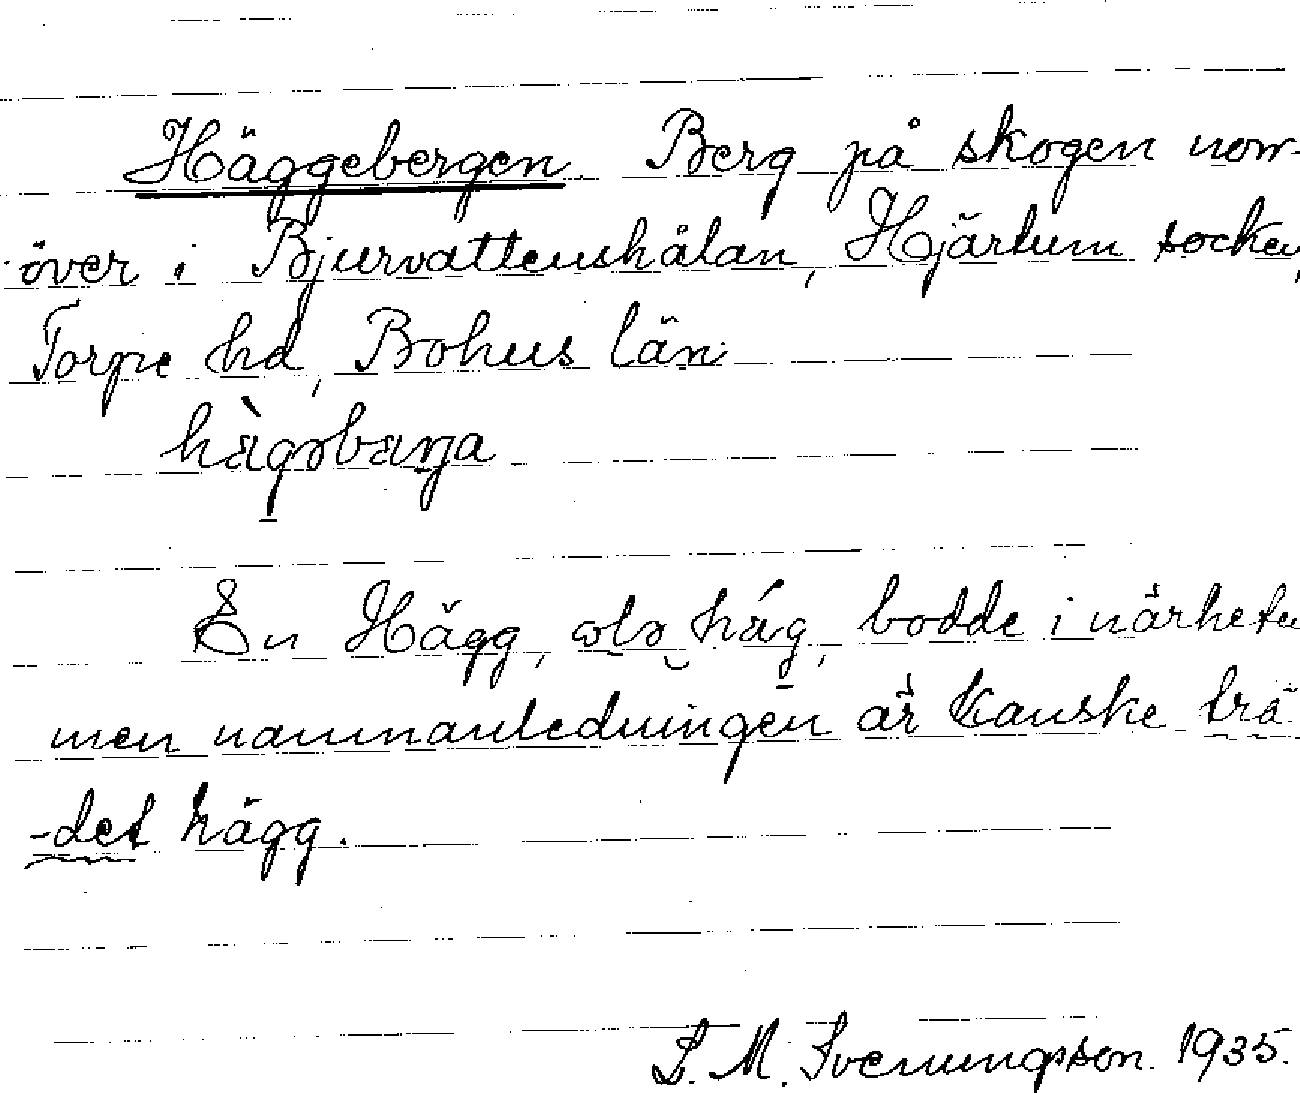 Häggebergen. Berg på skogen norr-
över i Bjurvattenshålan, Hjärtum socken,
Torpe hd, Bohus län
En Hägg, bodde i närheten
men namnanledningen är kanske trä
-det hägg.
S. M. Svenungsson. 1935.